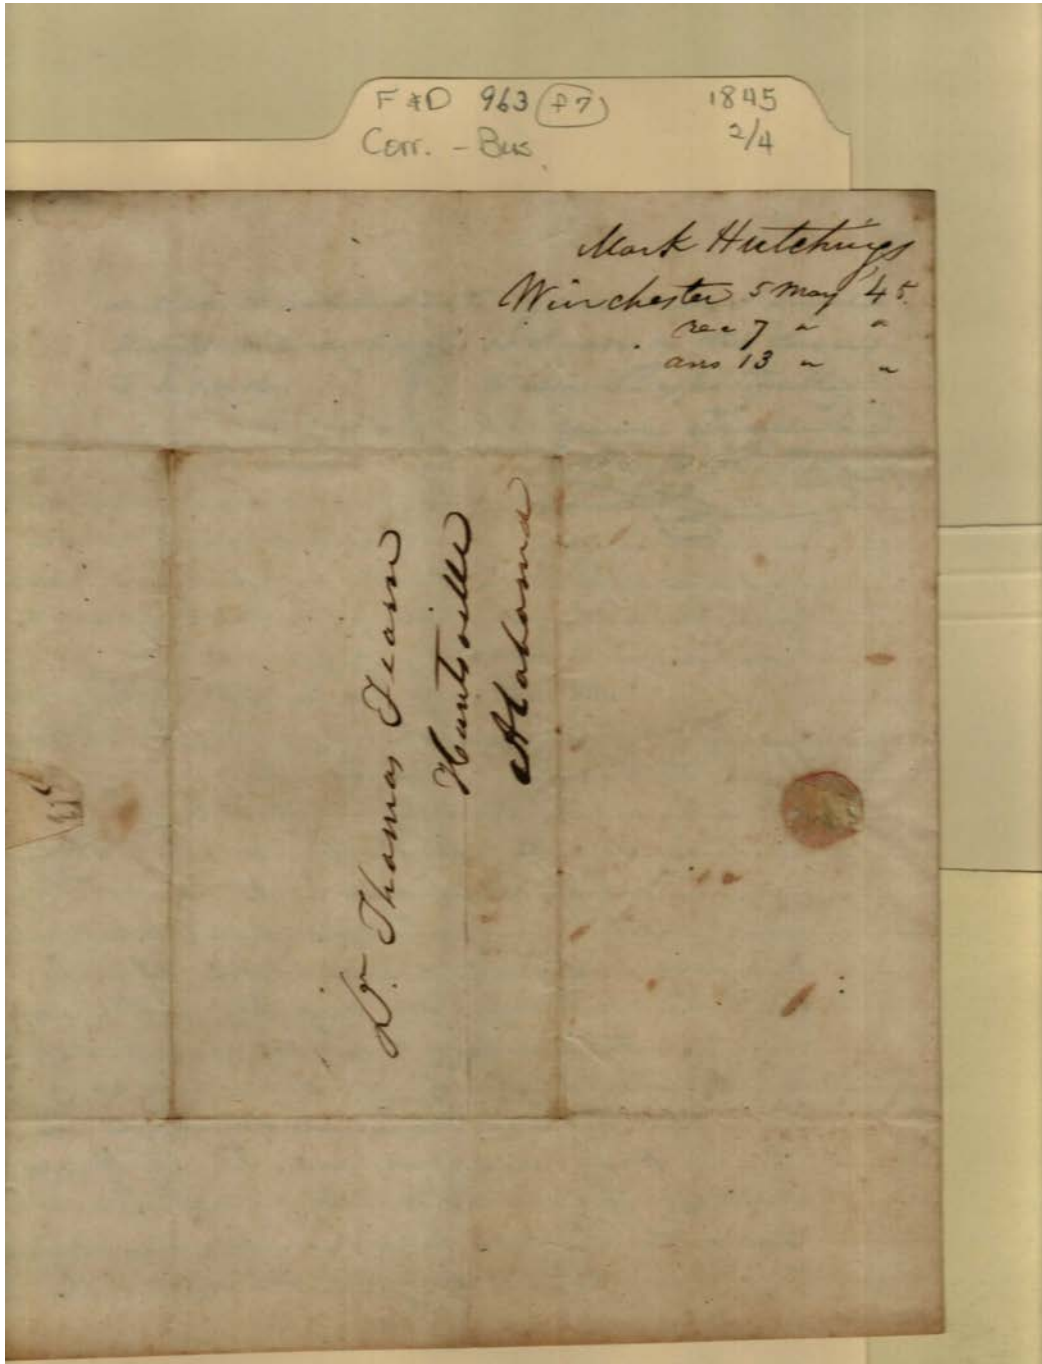 F&D 963 (f7) 1845
Corr. - Bus. 2/4
Mark Hutchings
Winchester 5 May '45.
rec 7 " "
ans 13 " "
Dr. Thomas Fearn
Huntsville
Alabama